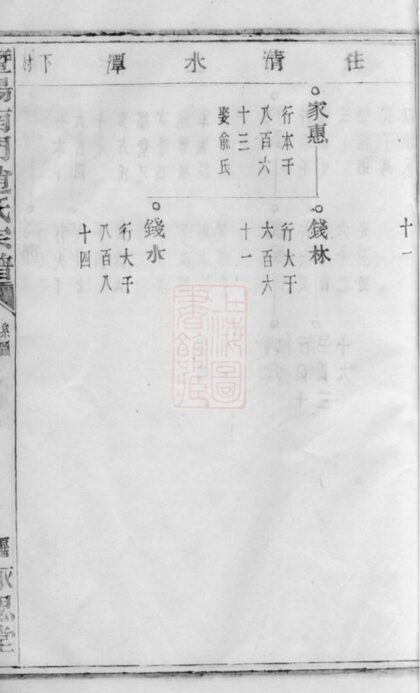 住清水潭
下村
十一
家惠
行本千
八百六
十三
娶俞氏
錢林
行大千
六百六
十一
錢水
行大千
八百八
十四
上海圖
書館藏
暨陽南門趙氏宗譜
系圖
永思堂